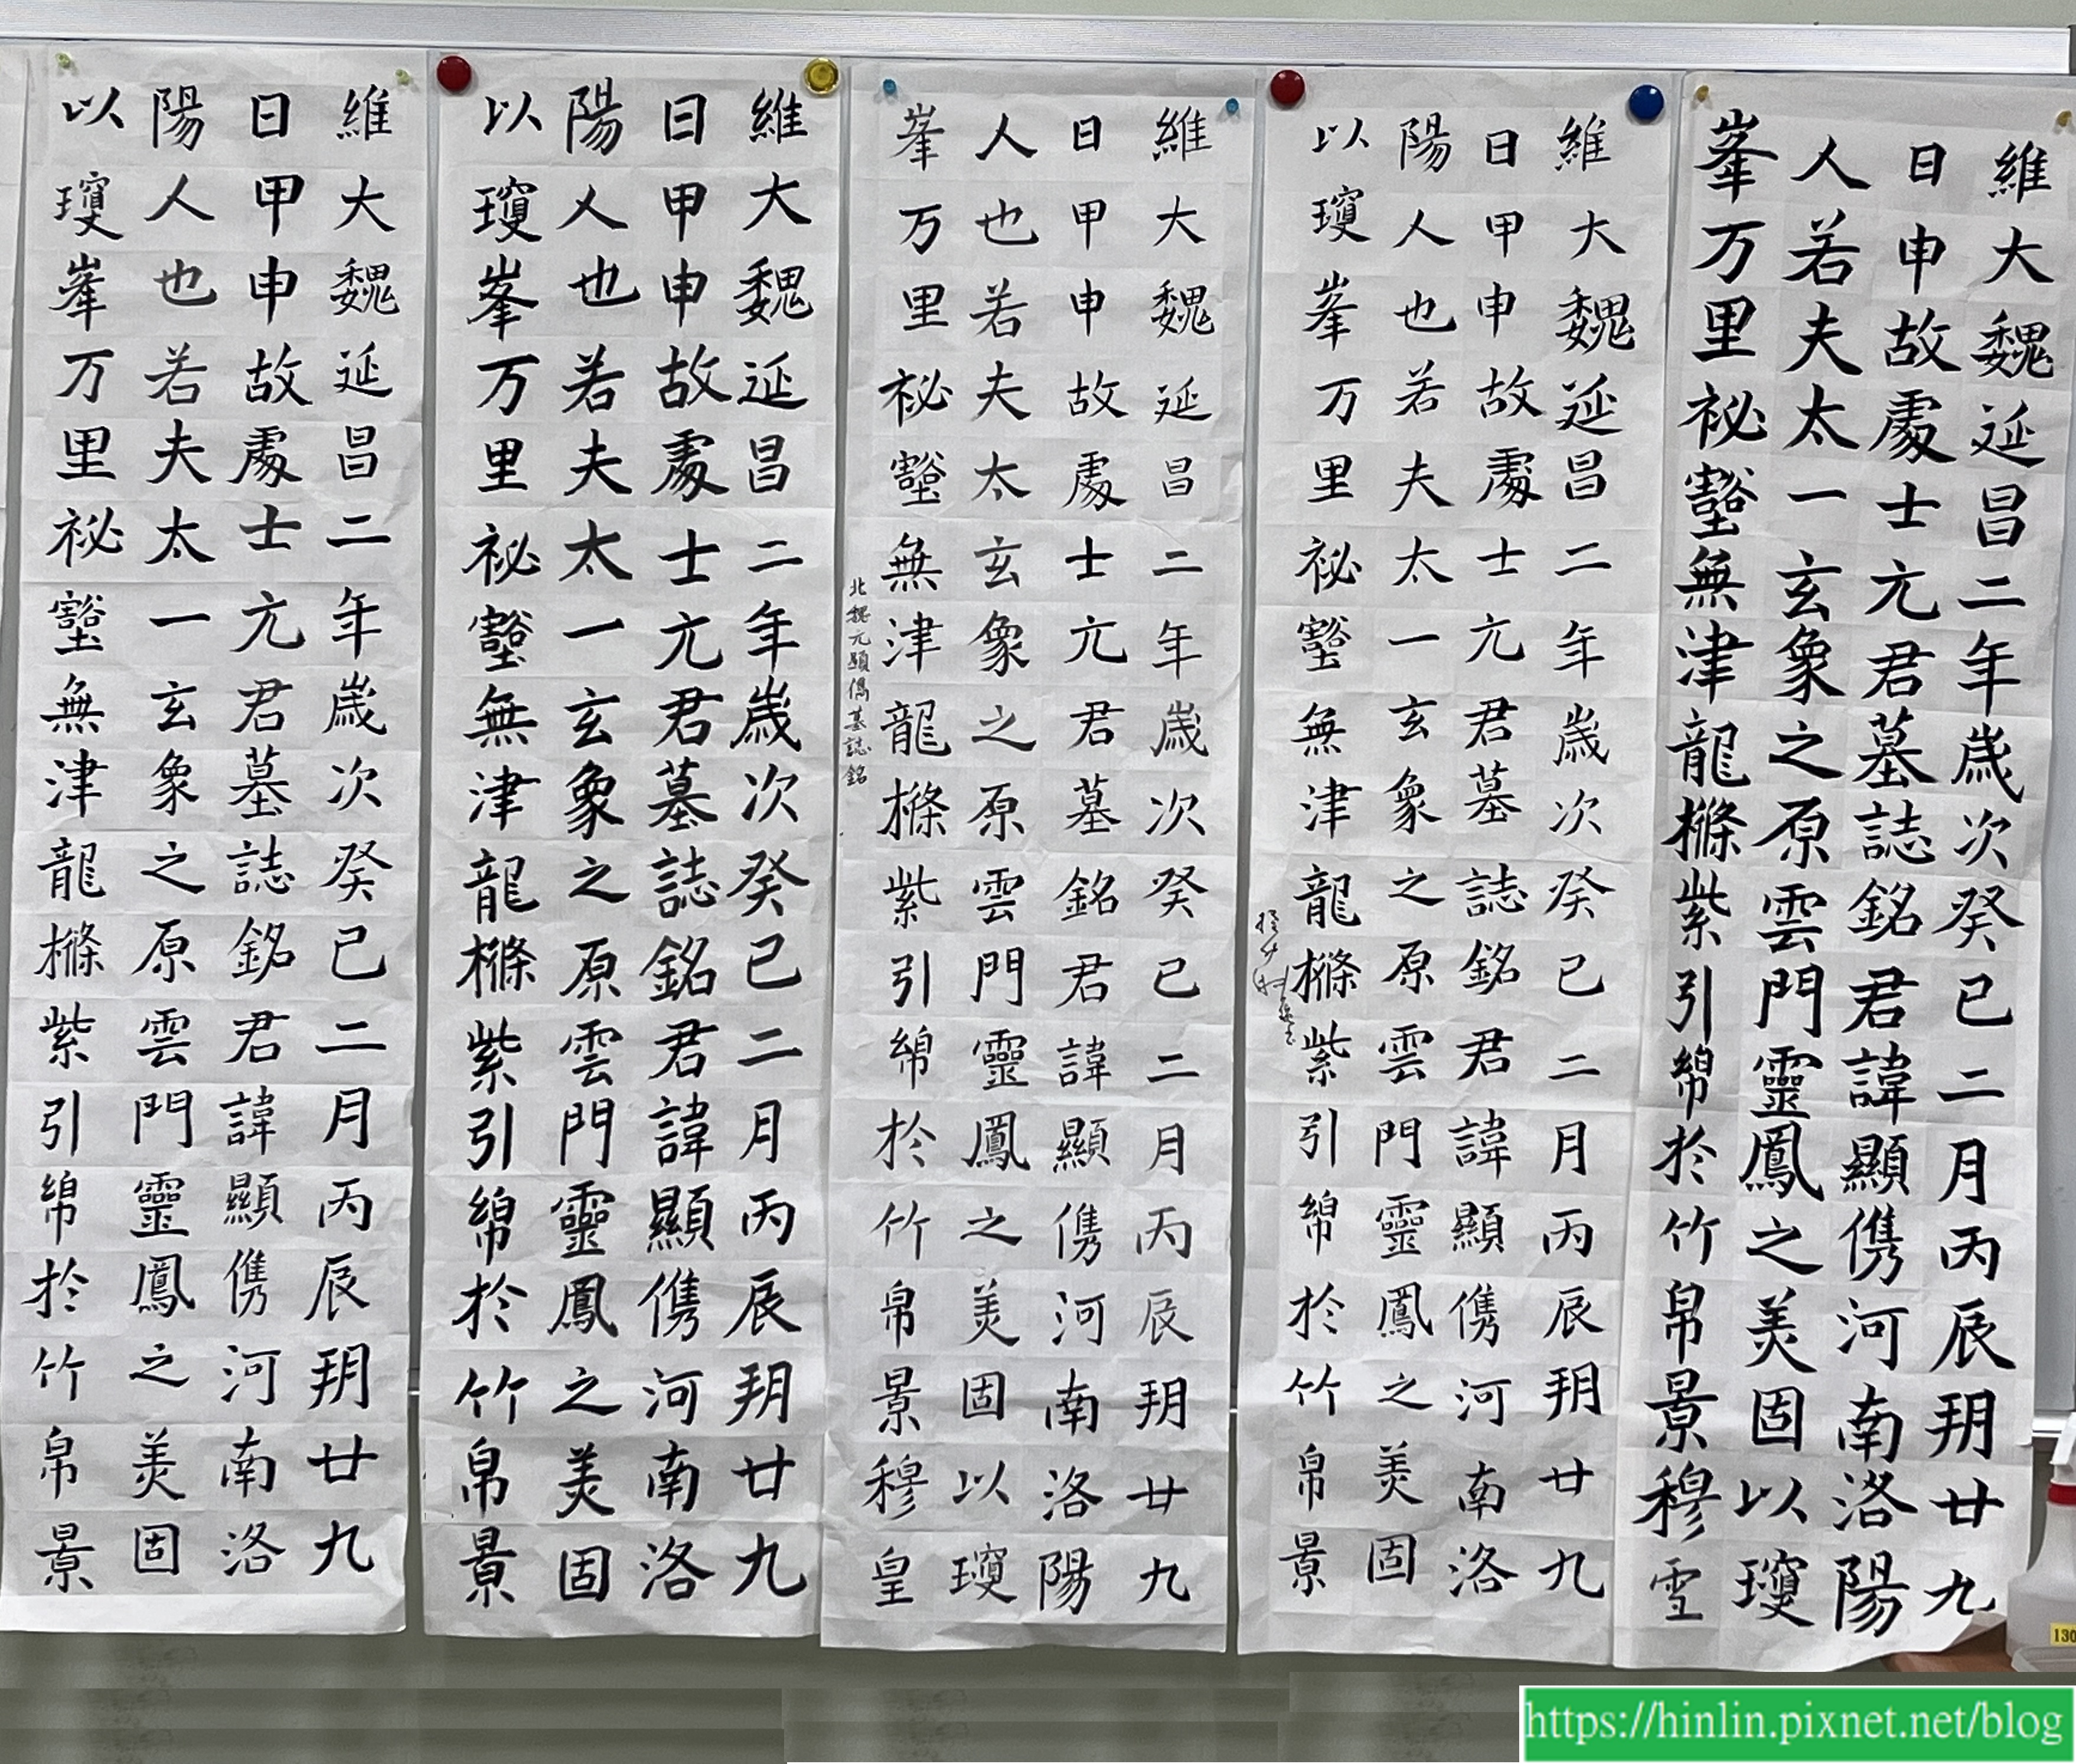 維大魏延昌二年歲次癸巳二月丙辰玥廿九
日申故處士元君墓誌銘君諱顯儁河南洛陽
人若夫太一玄象之原雲門靈鳳之美固以瓊
峯万里祕壑無津龍檦紫引綿於竹帛景穆雪
維大魏延昌二年歲次癸巳二月丙辰玥廿九
日甲申故處士元君墓誌銘君諱顯儁河南洛
陽人也若夫太一玄象之原雲門靈鳳之美固
以瓊峯万里祕壑無津龍檦紫引綿於竹帛景
維大魏延昌二年歲次癸巳二月丙辰玥廿九
日甲申故處士元君墓銘君諱顯儁河南洛陽
人也若夫太玄象之原雲門靈鳳之美固以瓊
峯万里祕壑無津龍檦紫引綿於竹帛景穆皇
北魏元顯儁墓誌銘
維大魏延昌二年歲次癸巳二月丙辰玥廿九
日甲申故處士元君墓誌銘君諱顯儁河南洛
陽人也若夫太一玄象之原雲門靈鳳之美固
以瓊峯万里祕壑無津龍檦紫引綿於竹帛景
維大魏延昌二年歲次癸巳二月丙辰玥廿九
日甲申故處士元君墓誌銘君諱顯儁河南洛
陽人也若夫太一玄象之原雲門靈鳳之美固
以瓊峯万里祕壑無津龍檦紫引綿於竹帛景
130
https://hinlin.pixnet.net/blog